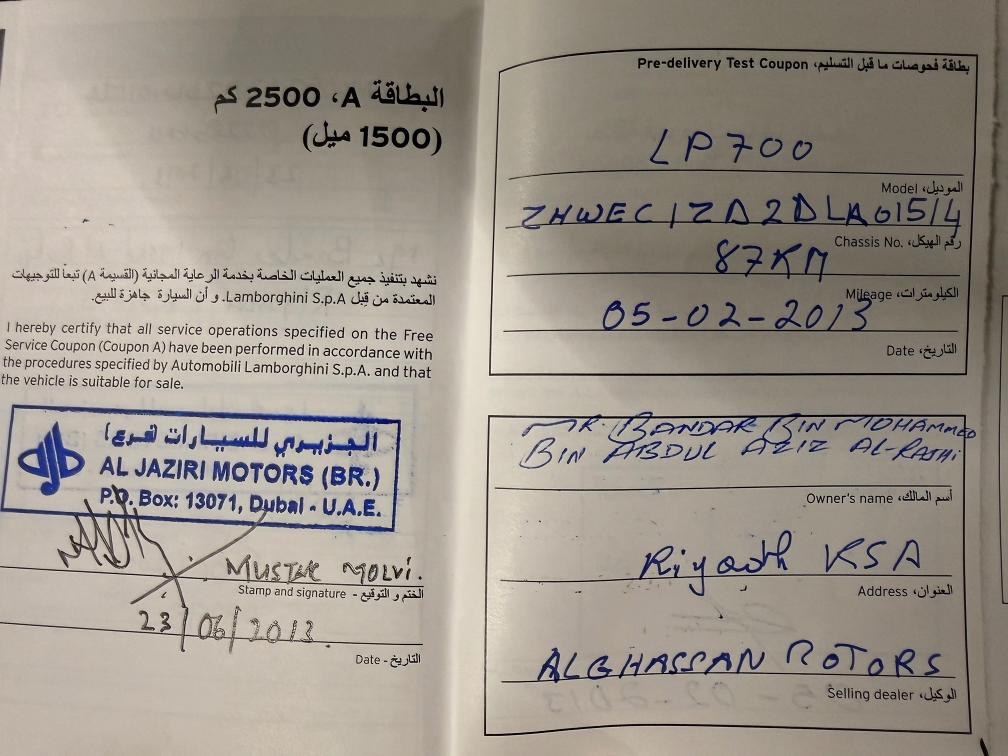 البطاقة A، 2500 كم
(1500 ميل)
نشهد بتنفيذ جميع العمليات الخاصة بخدمة الرعاية المجانية (القسيمة A) تبعاً للتوجيهات
المعتمدة من قِبل Lamborghini S.p.A. و أن السيارة جاهزة للبيع.
I hereby certify that all service operations specified on the Free
Service Coupon (Coupon A) have been performed in accordance with
the procedures specified by Automobili Lamborghini S.p.A. and that
the vehicle is suitable for sale.
الجزيري للسيارات (فرع)
AL JAZIRI MOTORS (BR.)
P.O. Box: 13071, Dubai - U.A.E.
MUSTAK MOLVI.
Stamp and signature - الختم و التوقيع
23/06/2013
Date - التاريخ
Pre-delivery Test Coupon بطاقة فحوصات ما قبل التسليم،
LP700
Model الموديل،
ZHWEC1ZD2DLA01514
Chassis No. رقم الهيكل،
87KM
Mileage الكيلومترات،
05-02-2013
Date التاريخ،
MR. BANDAR BIN MOHAMMED
BIN ABDUL AZIZ AL-RAJHI
Owner's name أسم المالك،
Riyadh KSA
Address العنوان،
ALGHASSAN MOTORS
Selling dealer الوكيل،